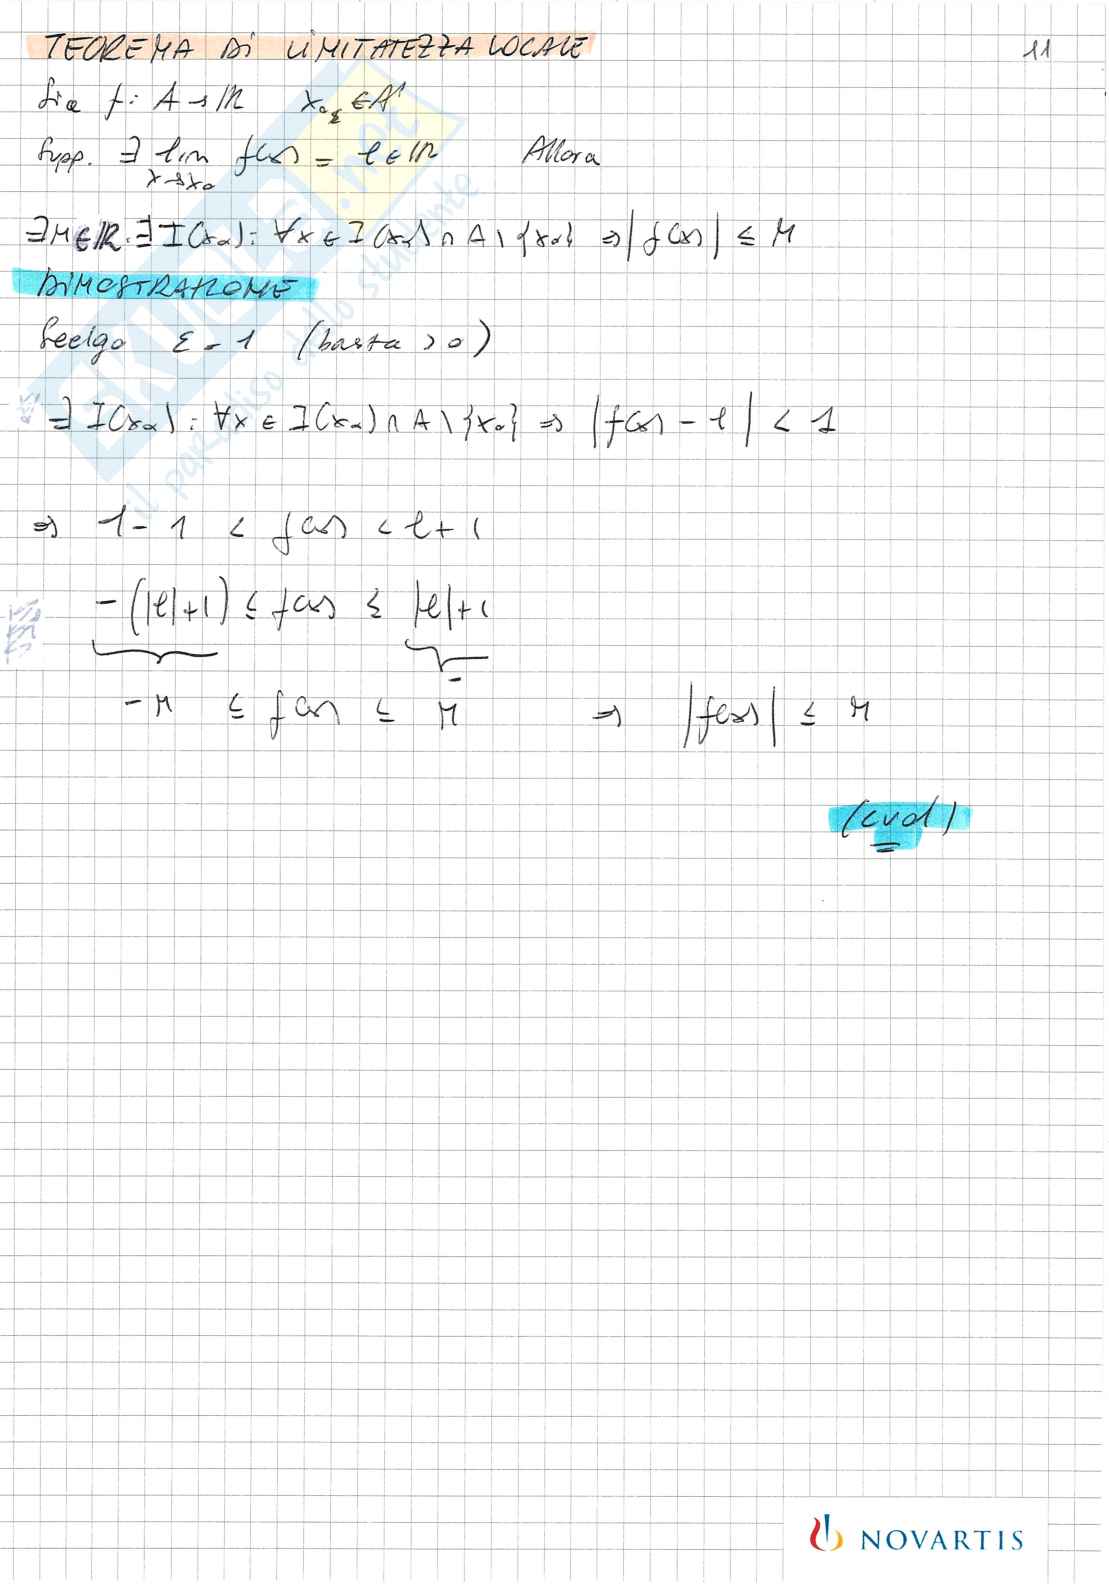 TEOREMA DI LIMITATEZZA LOCALE
11
Sia f: A → ℝ x₀ ∈ A'
Supp. ∃ lim x→x₀ f(x) = ℓ ∈ ℝ Allora
∃ M ∈ ℝ. ∃ I(x₀): ∀x ∈ I(x₀) ∩ A \ {x₀} ⇒ |f(x)| ≤ M
DIMOSTRAZIONE
Scelgo ε = 1 (basta > 0)
∃ I(x₀): ∀x ∈ I(x₀) ∩ A \ {x₀} ⇒ |f(x) - ℓ| < 1
⇒ ℓ - 1 < f(x) < ℓ + 1
-(|ℓ|+1) ≤ f(x) ≤ |ℓ|+1
-M ≤ f(x) ≤ M ⇒ |f(x)| ≤ M
(cvd)
SKUOLA.net
il paradiso dello studente
NOVARTIS